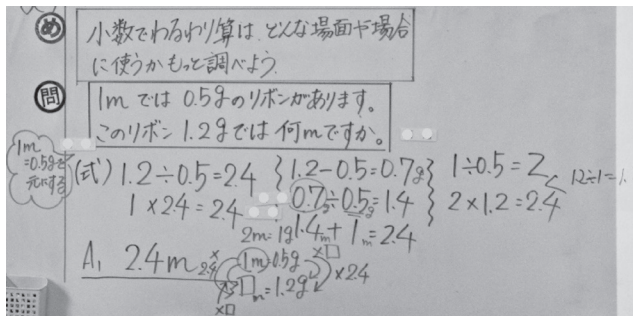 め
小数でわるわり算は、どんな場面や場合
に使うかもっと調べよう。
問
1mでは0.5gのリボンがあります。
このリボン1.2gでは何mですか。
1m
=0.5gを
元にする
(式) 1.2÷0.5=2.4
1×2.4=2.4
1.2-0.5=0.7g
0.7g÷0.5g=1.4
2m=1g
1.4m+1m=2.4
1÷0.5=2
1.2÷1=1.
2×1.2=2.4
A, 2.4m
×2.4
1m=0.5g
×□
□m=1.2g
×2.4
×□